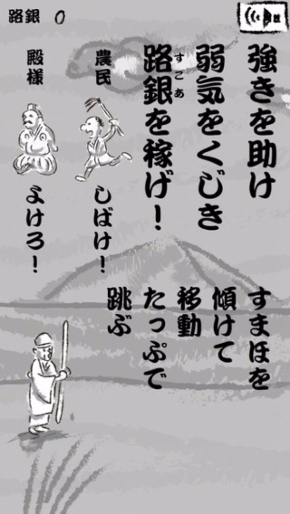 路銀 0
強きを助け
弱気をくじき
路銀を稼げ！
すこあ
農民 しばけ！
殿様 よけろ！
すまほを
傾けて
移動
たっぷで
跳ぶ